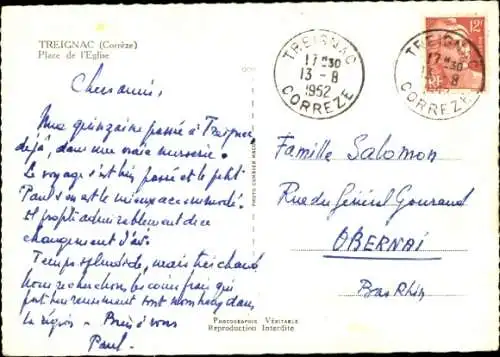 TREIGNAC (Corrèze)
Place de l'Eglise
Chers amis,
Une quinzaine passée à Treignac,
déjà, dans une vraie
Le voyage s'est bien passé et le petit
Paul s'en est le mieux accommodé.
Il profite admirablement de ce
changement d'air.
Temps splendide, mais très chaud,
Nous recherchons les coins frais qui
fort heureusement sont nombreux dans
la région - Bien à vous
Paul.
TREIGNAC
17H30
13 - 8
1952
CORREZE
TREIGNAC
17H30
13 - 8
1952
CORREZE
12F
RF
Famille Salomon
Rue du Général Gouraud
OBERNAI
Bas Rhin
Photographie Véritable
Reproduction Interdite